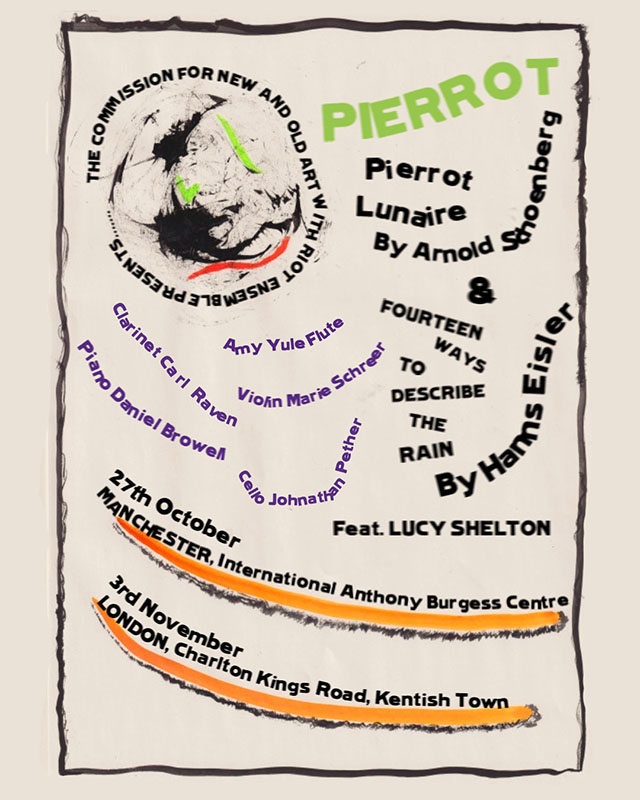 THE COMMISSION FOR NEW AND OLD ART WITH RIOT ENSEMBLE PRESENTS......
PIERROT
Pierrot
Lunaire
By Arnold Schoenberg
&
FOURTEEN
WAYS
TO
DESCRIBE
THE
RAIN
By Hanns Eisler
Amy Yule Flute
Clarinet Carl Raven
Violin Marie Schreer
Piano Daniel Browell
Cello Johnathan Pether
Feat. LUCY SHELTON
27th October
MANCHESTER, International Anthony Burgess Centre
3rd November
LONDON, Charlton Kings Road, Kentish Town